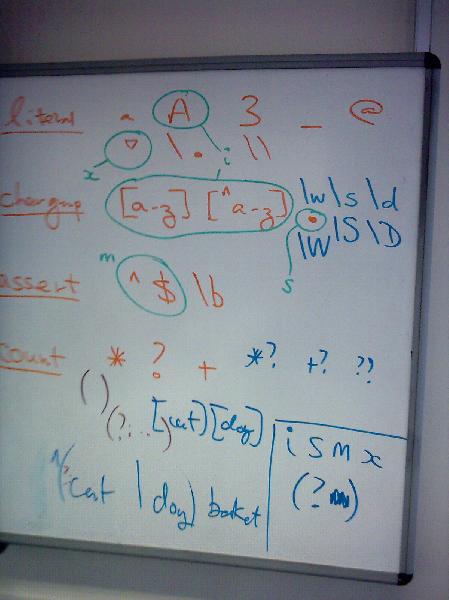 literal a A 3 _ @
x ▽ \. i \\
chargrp [a-z] [^a-z] \w \s \d
. \W \S \D
s
assert m ^ $ \b
count * ? + *? +? ??
()
(?...) [cat) [dog]
i s m x
^(cat | dog) basket (? )